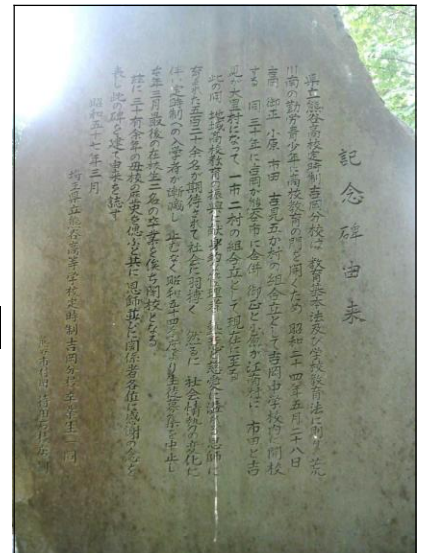 記念碑由来
県立熊谷高校定時制吉岡分校は 教育基本法及び学校教育法に則り 荒
川南の勤労青少年に高校教育の門を開くため 昭和二十四年五月二十八日
吉岡 御正 小原 市田 吉見五か村の組合立として吉岡中学校内に開校
する 同三十年に吉岡が熊谷市に合併 御正と小原が江南村に 市田と吉
見が大里村になって 一市二村の組合立として現在に至る
此の間 地域高校教育の振興に献身的な管理者 慈愛に溢れる恩師に
育まれた五百二十余名が期待されて社会に羽搏く 然るに 社会情勢の変化に
伴い定時制への入学者が漸減し 止むなく昭和五十四年度より生徒募集を中止し
本年三月最後の在校生二名の卒業を俟ち閉校となる
茲に三十有余年の母校の歴史を偲ぶと共に 恩師並びに関係者各位に感謝の念を
表し此の碑を建て由来を誌す
昭和五十七年三月
埼玉県立熊谷高等学校定時制吉岡分校卒業生一同